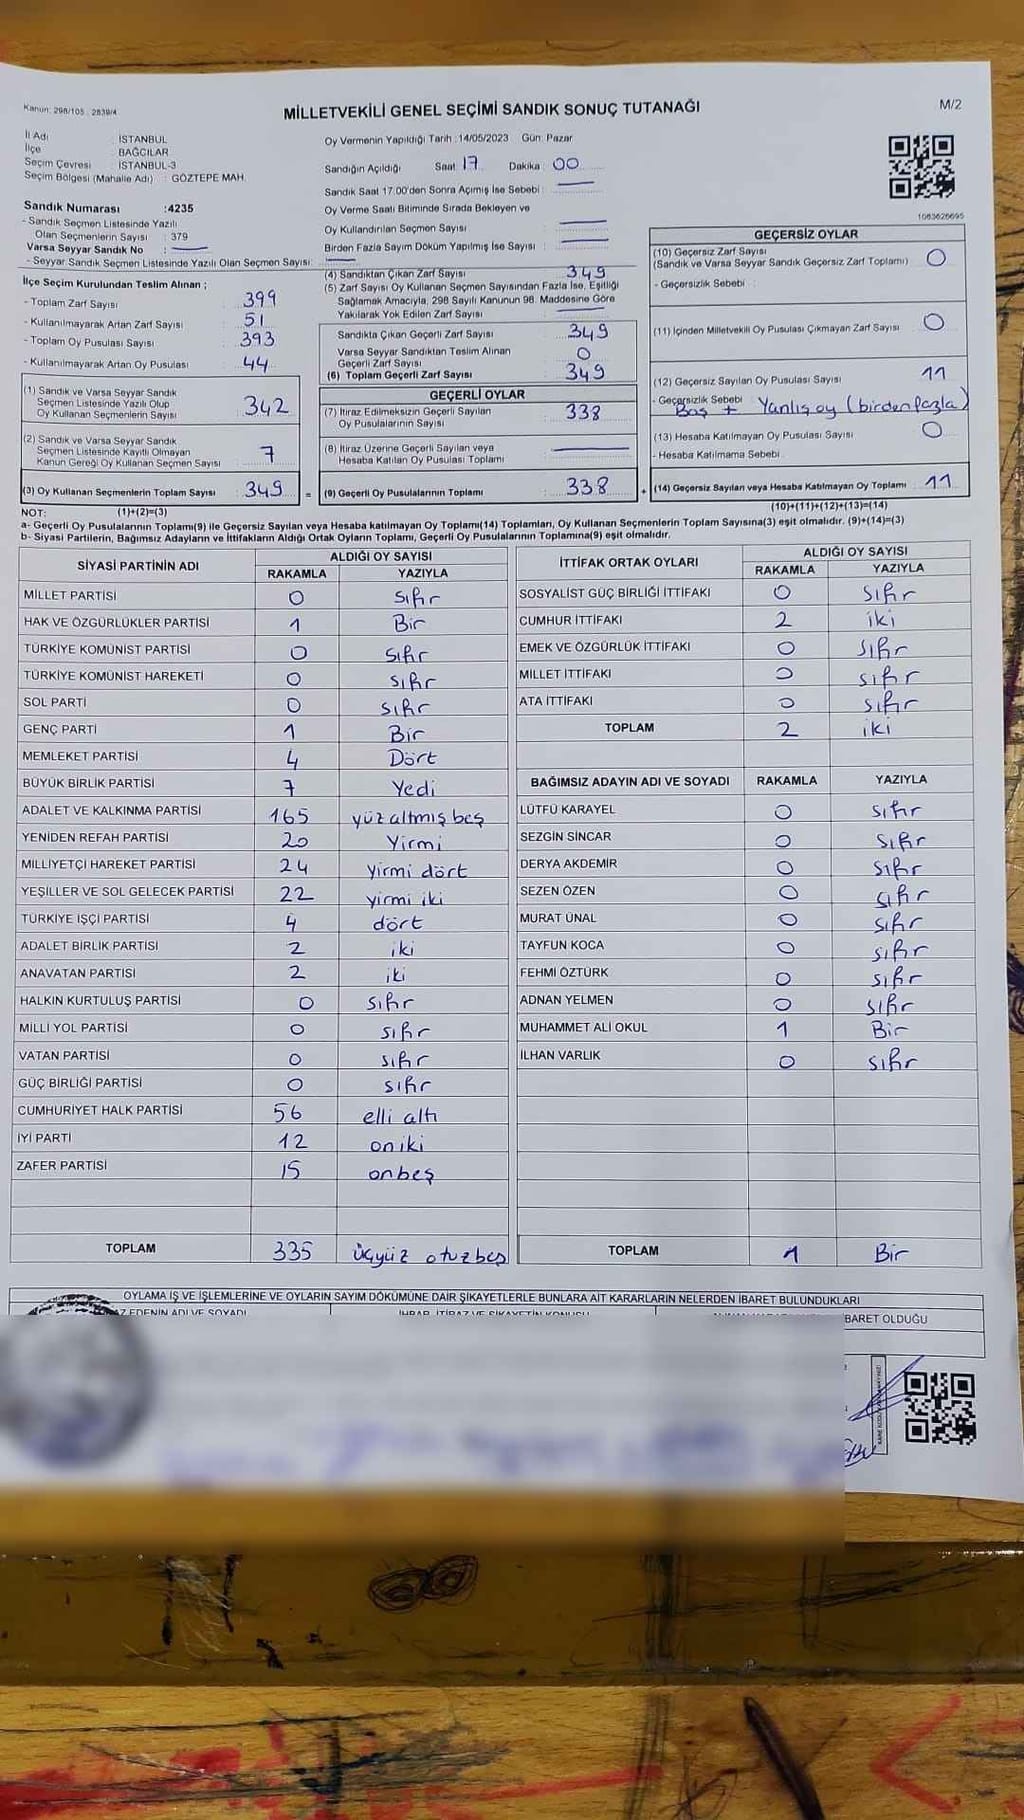 Kanun: 298/105 . 2839/4
MİLLETVEKİLİ GENEL SEÇİMİ SANDIK SONUÇ TUTANAĞI
M/2
İl Adı : İSTANBUL
İlçe : BAĞCILAR
Seçim Çevresi : İSTANBUL-3
Seçim Bölgesi (Mahalle Adı) : GÖZTEPE MAH.
Sandık Numarası :4235
- Sandık Seçmen Listesinde Yazılı
Olan Seçmenlerin Sayısı : 379
Varsa Seyyar Sandık No : —
- Seyyar Sandık Seçmen Listesinde Yazılı Olan Seçmen Sayısı: —
Oy Vermenin Yapıldığı Tarih : 14/05/2023 Gün: Pazar
Sandığın Açıldığı Saat: 17 Dakika : 00
Sandık Saat 17.00'den Sonra Açımış İse Sebebi : —
Oy Verme Saati Bitiminde Sırada Bekleyen ve
Oy Kullandırılan Seçmen Sayısı : —
Birden Fazla Sayım Döküm Yapılmış İse Sayısı : —
İlçe Seçim Kurulundan Teslim Alınan ;
- Toplam Zarf Sayısı : 399
- Kullanılmayarak Artan Zarf Sayısı : 51
- Toplam Oy Pusulası Sayısı : 393
- Kullanılmayarak Artan Oy Pusulası : 44
(1) Sandık ve Varsa Seyyar Sandık
Seçmen Listesinde Yazılı Olup
Oy Kullanan Seçmenlerin Sayısı : 342
(2) Sandık ve Varsa Seyyar Sandık
Seçmen Listesinde Kayıtlı Olmayan
Kanun Gereği Oy Kullanan Seçmen Sayısı : 7
(3) Oy Kullanan Seçmenlerin Toplam Sayısı : 349 =
(4) Sandıktan Çıkan Zarf Sayısı : 349
(5) Zarf Sayısı Oy Kullanan Seçmen Sayısından Fazla İse, Eşitliği
Sağlamak Amacıyla, 298 Sayılı Kanunun 98. Maddesine Göre
Yakılarak Yok Edilen Zarf Sayısı : —
Sandıkta Çıkan Geçerli Zarf Sayısı : 349
Varsa Seyyar Sandıktan Teslim Alınan
Geçerli Zarf Sayısı : 0
(6) Toplam Geçerli Zarf Sayısı : 349
GEÇERLİ OYLAR
(7) İtiraz Edilmeksizin Geçerli Sayılan
Oy Pusulalarının Sayısı : 338
(8) İtiraz Üzerine Geçerli Sayılan veya
Hesaba Katılan Oy Pusulası Toplamı : —
(9) Geçerli Oy Pusulalarının Toplamı : 338 +
1083626695
GEÇERSİZ OYLAR
(10) Geçersiz Zarf Sayısı
(Sandık ve Varsa Seyyar Sandık Geçersiz Zarf Toplamı) : 0
- Geçersizlik Sebebi :
(11) İçinden Milletvekili Oy Pusulası Çıkmayan Zarf Sayısı : 0
(12) Geçersiz Sayılan Oy Pusulası Sayısı : 11
- Geçersizlik Sebebi : Boş + Yanlış oy (birden fazla)
(13) Hesaba Katılmayan Oy Pusulası Sayısı : 0
- Hesaba Katılmama Sebebi :
(14) Geçersiz Sayılan veya Hesaba Katılmayan Oy Toplamı : 11
NOT: (1)+(2)=(3)
(10)+(11)+(12)+(13)=(14)
a- Geçerli Oy Pusulalarının Toplamı(9) ile Geçersiz Sayılan veya Hesaba katılmayan Oy Toplamı(14) Toplamları, Oy Kullanan Seçmenlerin Toplam Sayısına(3) eşit olmalıdır. (9)+(14)=(3)
b- Siyasi Partilerin, Bağımsız Adayların ve İttifakların Aldığı Ortak Oyların Toplamı, Geçerli Oy Pusulalarının Toplamına(9) eşit olmalıdır.
SİYASİ PARTİNİN ADI ALDIĞI OY SAYISI
RAKAMLA YAZIYLA
MİLLET PARTİSİ 0 sıfır
HAK VE ÖZGÜRLÜKLER PARTİSİ 1 Bir
TÜRKİYE KOMÜNİST PARTİSİ 0 sıfır
TÜRKİYE KOMÜNİST HAREKETİ 0 sıfır
SOL PARTİ 0 sıfır
GENÇ PARTİ 1 Bir
MEMLEKET PARTİSİ 4 Dört
BÜYÜK BİRLİK PARTİSİ 7 Yedi
ADALET VE KALKINMA PARTİSİ 165 yüz altmış beş
YENİDEN REFAH PARTİSİ 20 Yirmi
MİLLİYETÇİ HAREKET PARTİSİ 24 yirmi dört
YEŞİLLER VE SOL GELECEK PARTİSİ 22 yirmi iki
TÜRKİYE İŞÇİ PARTİSİ 4 dört
ADALET BİRLİK PARTİSİ 2 iki
ANAVATAN PARTİSİ 2 iki
HALKIN KURTULUŞ PARTİSİ 0 sıfır
MİLLİ YOL PARTİSİ 0 sıfır
VATAN PARTİSİ 0 sıfır
GÜÇ BİRLİĞİ PARTİSİ 0 sıfır
CUMHURİYET HALK PARTİSİ 56 elli altı
İYİ PARTİ 12 on iki
ZAFER PARTİSİ 15 onbeş
TOPLAM 335 üçyüz otuzbeş
İTTİFAK ORTAK OYLARI ALDIĞI OY SAYISI
RAKAMLA YAZIYLA
SOSYALİST GÜÇ BİRLİĞİ İTTİFAKI 0 sıfır
CUMHUR İTTİFAKI 2 iki
EMEK VE ÖZGÜRLÜK İTTİFAKI 0 sıfır
MİLLET İTTİFAKI 0 sıfır
ATA İTTİFAKI 0 sıfır
TOPLAM 2 iki
BAĞIMSIZ ADAYIN ADI VE SOYADI RAKAMLA YAZIYLA
LÜTFÜ KARAYEL 0 sıfır
SEZGİN SİNCAR 0 sıfır
DERYA AKDEMİR 0 sıfır
SEZEN ÖZEN 0 sıfır
MURAT ÜNAL 0 sıfır
TAYFUN KOCA 0 sıfır
FEHMİ ÖZTÜRK 0 sıfır
ADNAN YELMEN 0 sıfır
MUHAMMET ALİ OKUL 1 Bir
İLHAN VARLIK 0 sıfır
TOPLAM 1 Bir
OYLAMA İŞ VE İŞLEMLERİNE VE OYLARIN SAYIM DÖKÜMÜNE DAİR ŞİKAYETLERLE BUNLARA AİT KARARLARIN NELERDEN İBARET BULUNDUKLARI
EDENİN ADI VE SOYADI İHBAR, İTİRAZ VE ŞİKAYETİN KONUSU
BARET OLDUĞU